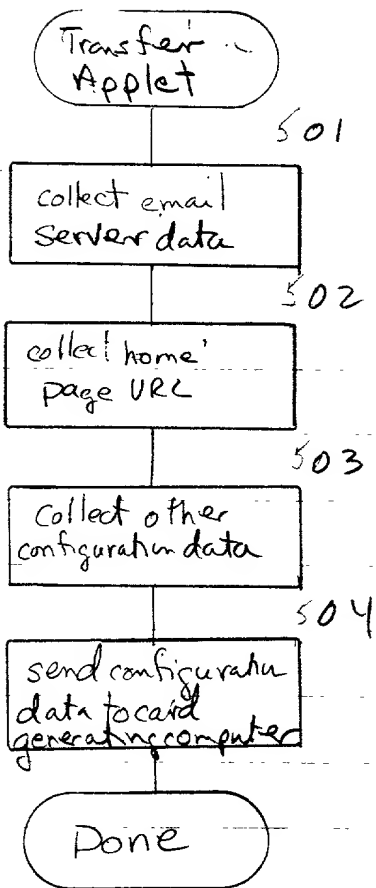 Transfer
Applet
501
collect email
server data
502
collect home
page URL
503
Collect other
configuration data
504
send configuration
data to card
generating computer
Done